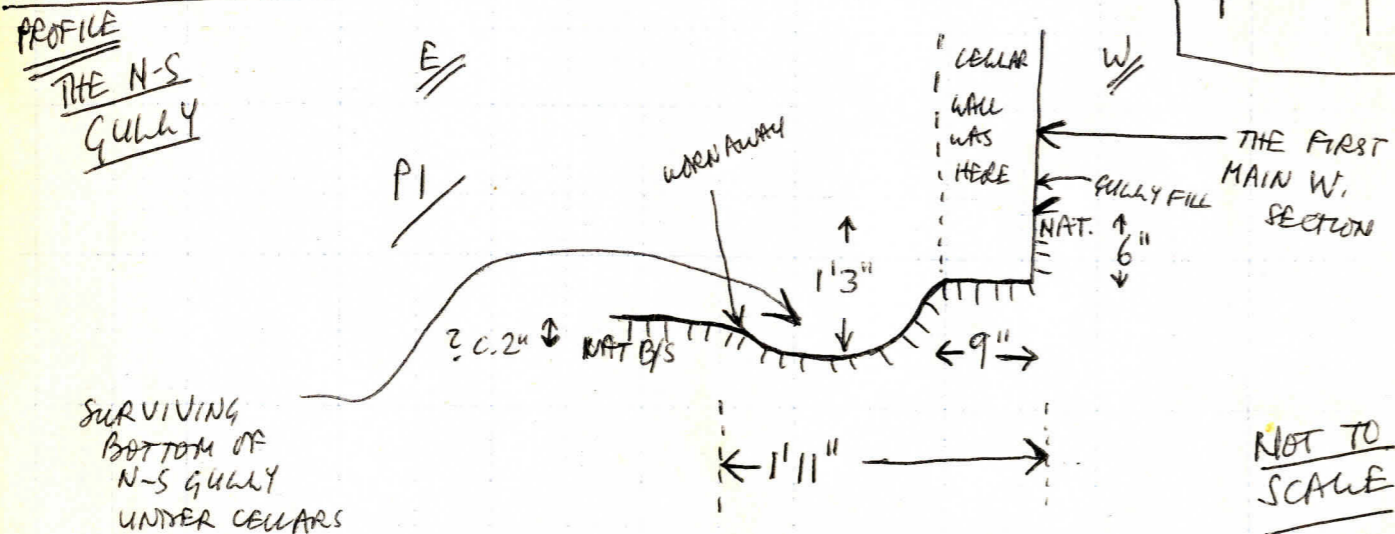 PROFILE
THE N-S
GULLY
E
P1
W
CELLAR
WALL
WAS
HERE
WORN AWAY
THE FIRST
MAIN W.
SECTION
GULLY FILL
NAT.
6"
1'3"
? c. 2"
NAT B/S
9"
1'11"
SURVIVING
BOTTOM OF
N-S GULLY
UNDER CELLARS
NOT TO
SCALE